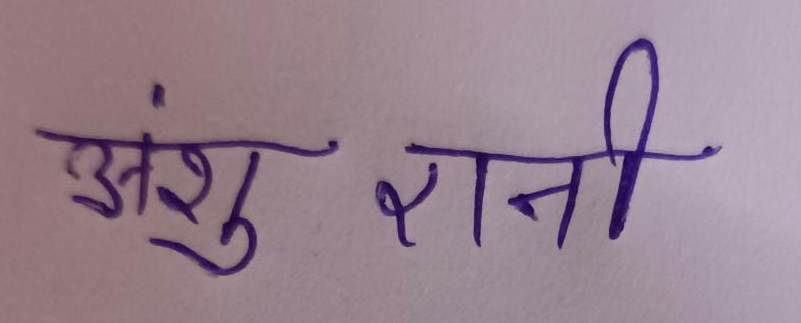 अंशु रानी